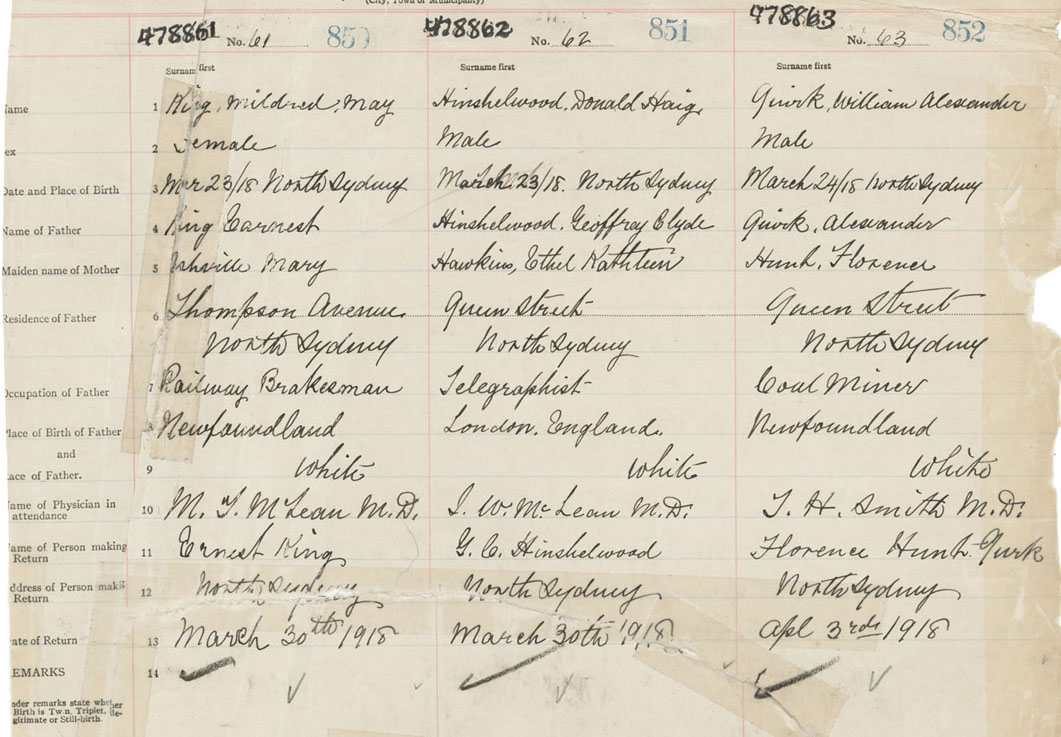 (City, Town or Municipality)
478861 No. 61 850 478862 No. 62 851 478863 No. 63 852
Surname first Surname first Surname first
Name 1 King, Mildred May Hinshelwood, Donald Haig Quirk, William Alexander
Sex 2 Female Male Male
Date and Place of Birth 3 Mar 23/18 North Sydney March 23/18. North Sydney March 24/18 North Sydney
Name of Father 4 King Earnest Hinshelwood, Geoffrey Clyde Quirk, Alexander
Maiden name of Mother 5 Mary Hawkins, Ethel Kathleen Hunt, Florence
Residence of Father 6 Thompson Avenue Queen Street Queen Street
North Sydney North Sydney North Sydney
Occupation of Father 7 Railway Brakesman Telegraphist Coal Miner
Place of Birth of Father 8 Newfoundland London, England. Newfoundland
and
Race of Father. 9 White White White
Name of Physician in
attendance 10 M. T. McLean M.D. J. W. McLean M.D. T. H. Smith M.D.
Name of Person making
Return 11 Ernest King G. C. Hinshelwood Florence Hunt Quirk
Address of Person making
Return 12 North Sydney North Sydney North Sydney
Date of Return 13 March 30th 1918 March 30th 1918 Apl 3rd 1918
REMARKS 14
Under remarks state whether
Birth is Twin, Triplet, Ille-
gitimate or Still-birth.